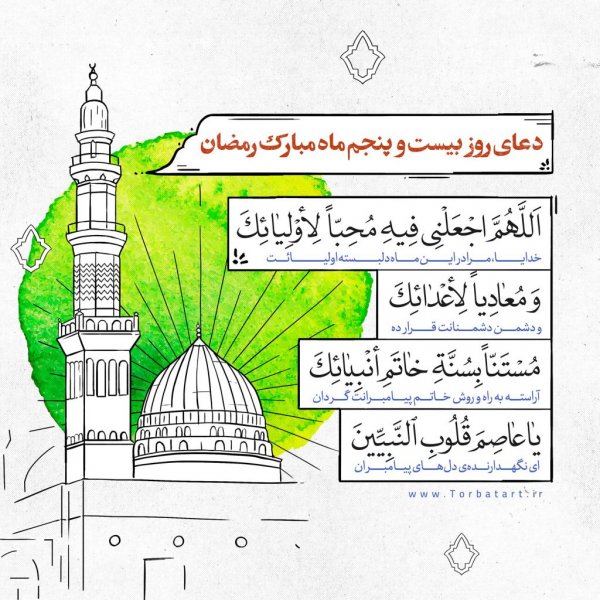 دعای روز بیست و پنجم ماه مبارک رمضان
اَللّهُمَّ اجْعَلْنی فیهِ مُحِبّاً لِأوْلِیٰائِكَ
خدایا، مرا در این ماه دلبسته اولیائت
وَ مُعٰادِیاً لِأعْدٰائِكَ
و دشمن دشمنانت قرار ده
مُسْتَنّاً بِسُنَّةِ خٰاتَمِ أنْبِیٰائِكَ
آراسته به راه و روش خاتم پیامبرانت گردان
یٰا عٰاصِمَ قُلُوبِ ٱلنَّبِیّینَ
ای نگهدارنده‌ی دل‌های پیامبران
www.Torbatart.ir